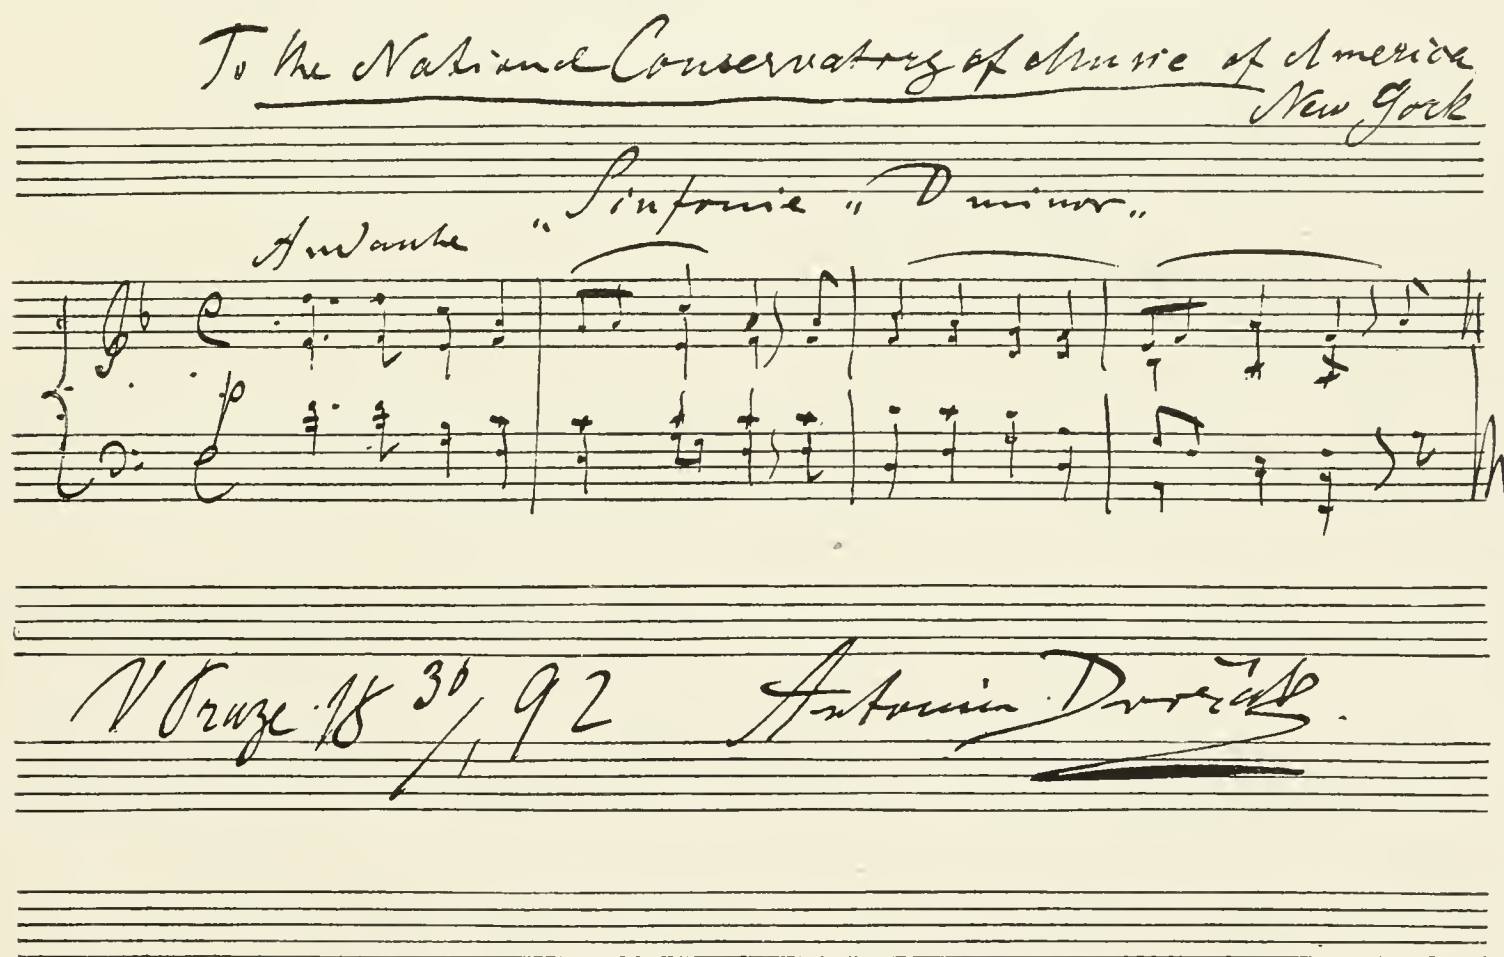 To the National Conservatory of Music of America
New York
„Sinfonie„ D minor„
Andante
p
V Praze 18 30/1 92 Antonín Dvořák.